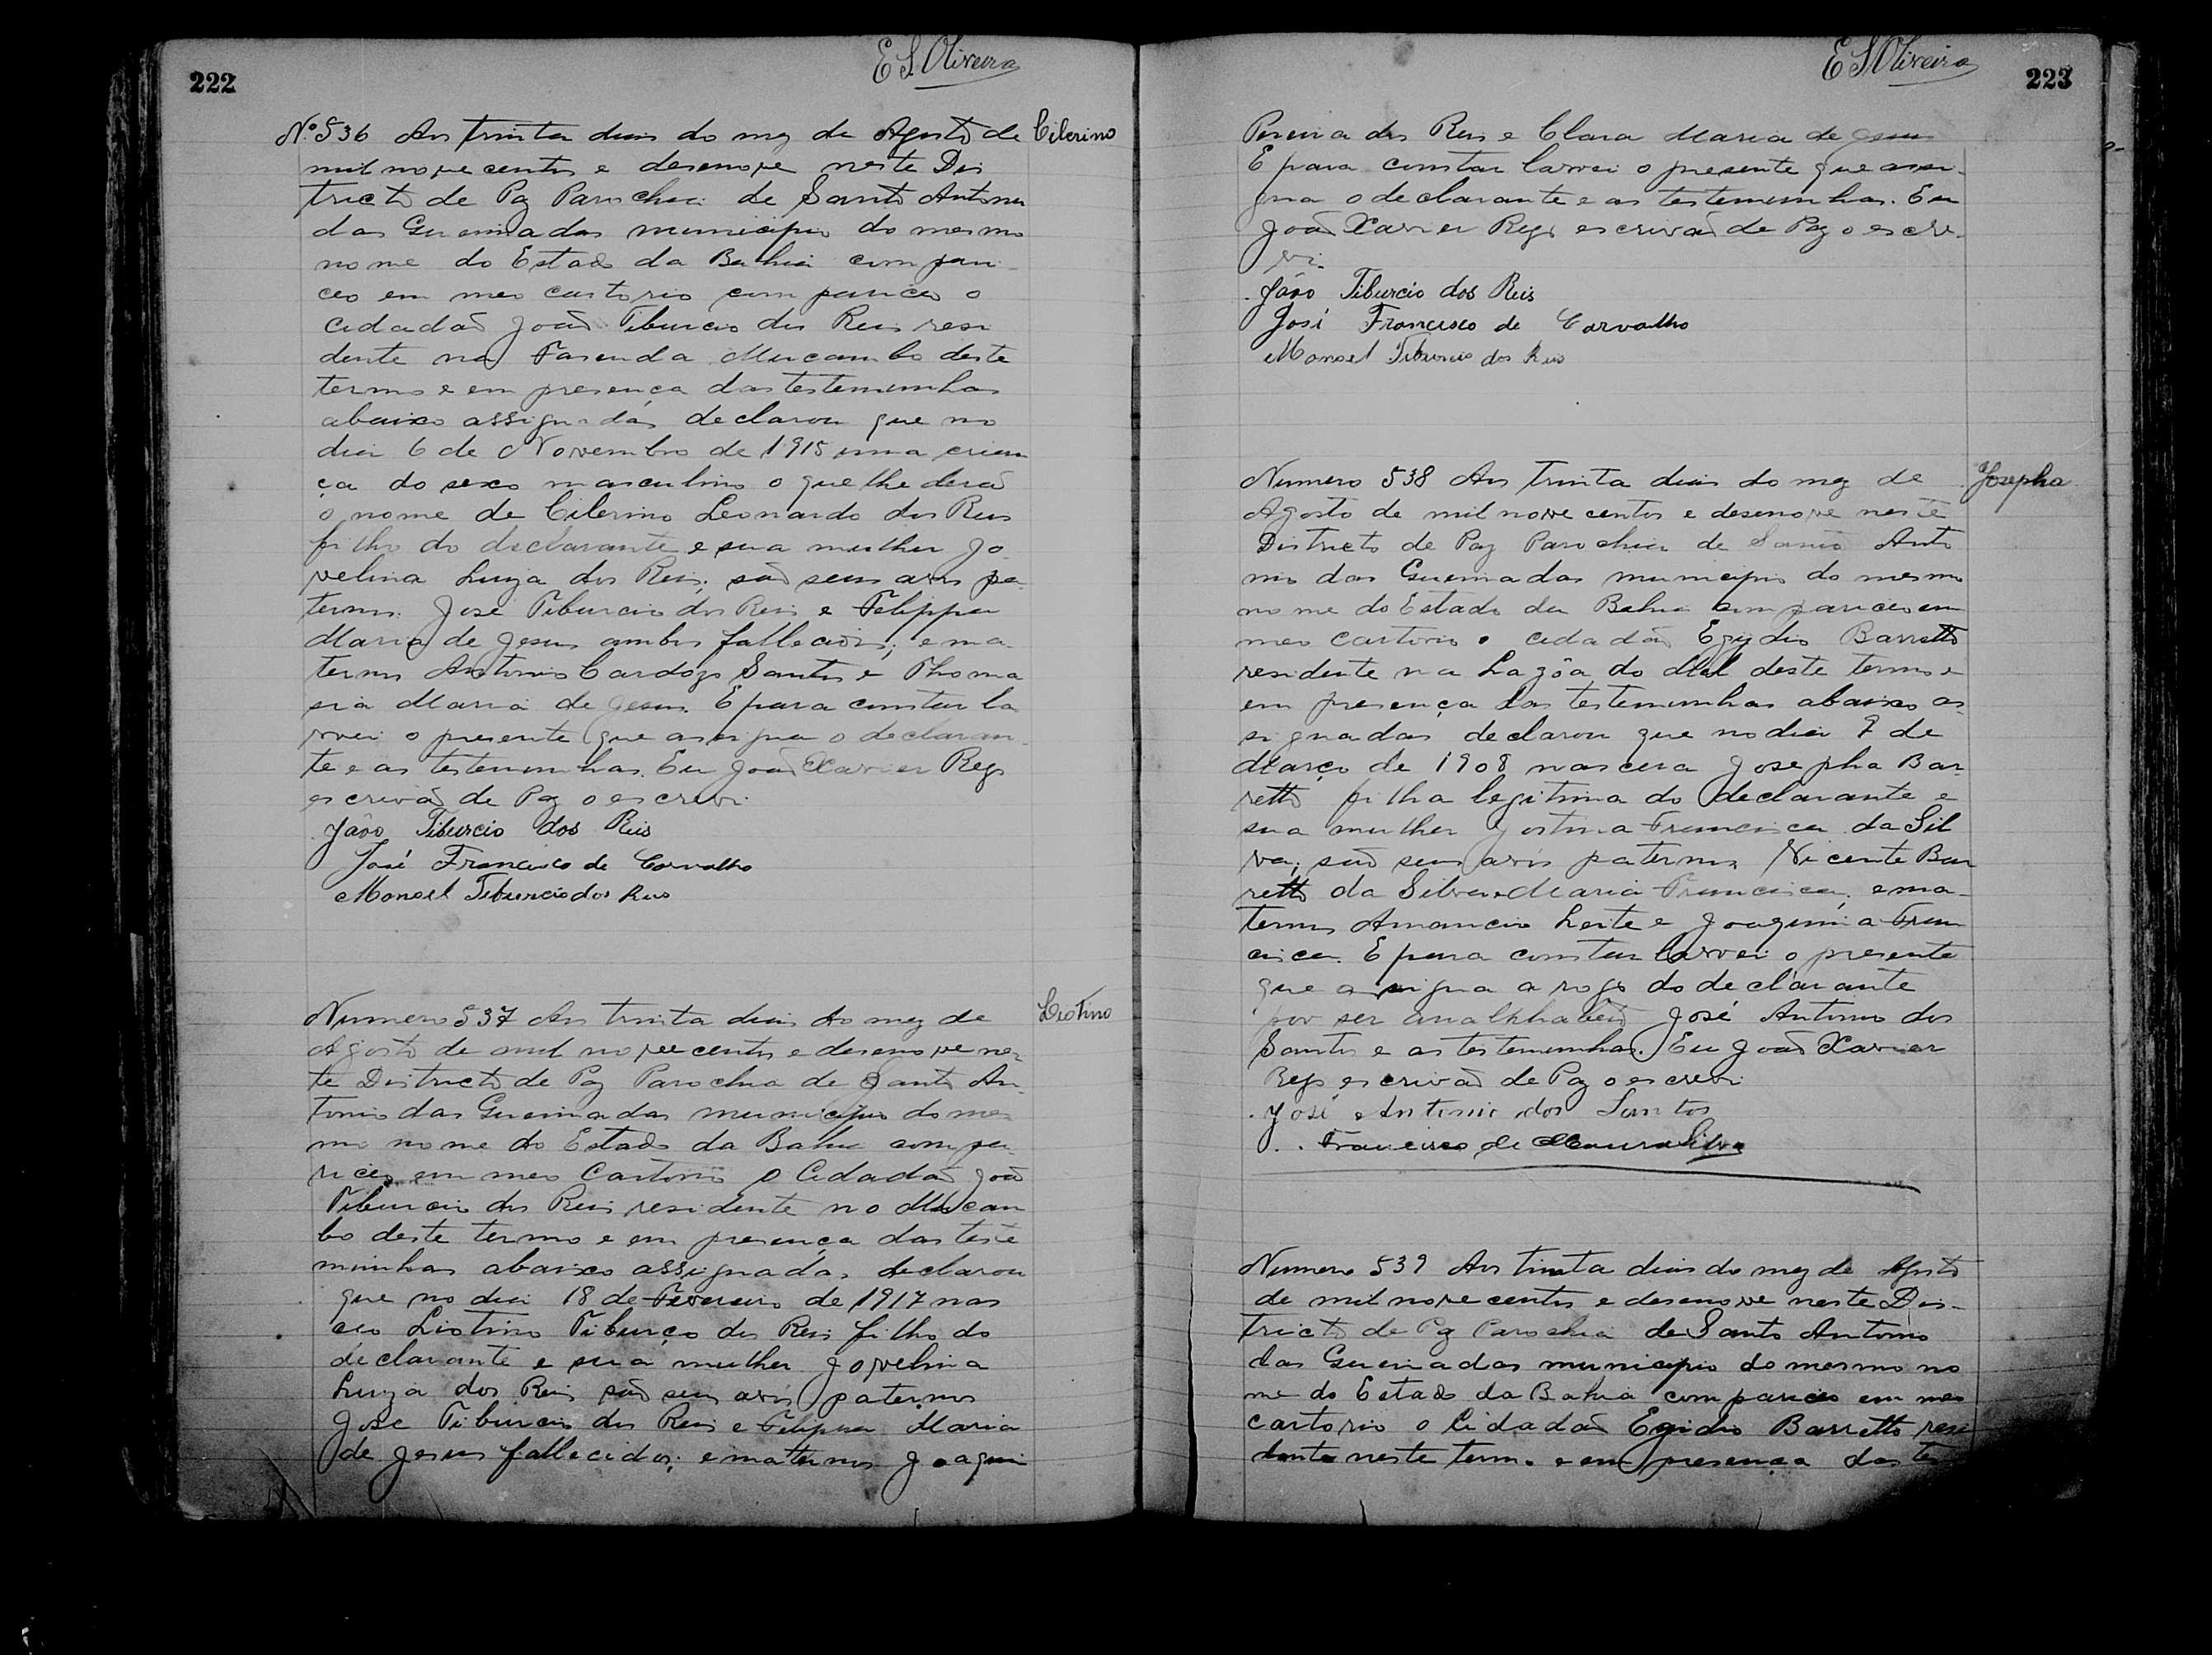 222
E S Oliveira
Nº 536 Aos trinta dias do mez de Agosto de
Cilerino
mil nove centos e desenove neste Dis
tricto de Paz Parochia de Santo Antonio
das Queimadas municipio do mesmo
nome do Estado da Bahia compare
ceo em meo cartorio compareceo o
Cidadaõ Joaõ Tiburcio dos Reis resi
dente na Fasenda Mucambo deste
termo e em presença das testemunhas
abaixo assignadas declarou que no
dia 6 de Novembro de 1915 uma crian
ça do sexo masculino o que lhe deraõ
o nome de Cilerino Leonardo dos Reis
filho do declarante e sua mulher Jo
velina Luiza dos Reis; saõ seus avós pa-
ternos José Tiburcio dos Reis e Felippa
Maria de Jesus ambos fallecidos; e ma-
ternos Antonio Cardozo Santos e Thoma
sia Maria de Jesus. E para constar la
vrei o presente que assigna o declaran-
te e as testemunhas. Eu Joaõ Xavier Rego
escrivaõ de Paz o escrevi.
Jaõo Tiburcio dos Reis
José Francisco de Carvalho
Manoel Tiburcio dos Reis
Numero 537 Aos trinta dias do mez de
Liotino
Agosto de mil nove centos e desenove nes-
te Districto de Paz Parochia de Santo An-
tonio das Queimadas municipio do mes-
mo nome do Estado da Bahia compa-
receo em meo Cartorio o Cidadaõ Joaõ
Tiburcio dos Reis residente no Mucam
bo deste termo e em presença das teste
munhas abaixo assignadas declarou
que no dia 18 de Fevereiro de 1917 nas
ceo Liotino Tiburço dos Reis filho do
declarante e sua mulher Jovelina
Luiza dos Reis saõ seus avós paternos
José Tiburcio dos Reis e Felippa Maria
de Jesus fallecidos; e maternos Joaquim
E S Oliveira
223
Pereira dos Reis e Clara Maria de Jesus
E para constar lavrei o presente que assi-
gna o declarante e as testemunhas. Eu
Joaõ Xavier Rego escrivaõ de Paz o escre-
vi.
Jaõo Tiburcio dos Reis
José Francisco de Carvalho
Manoel Tiburcio dos Reis
Numero 538 Aos trinta dias do mez de
Josepha
Agosto de mil nove centos e desenove neste
Districto de Paz Parochia de Santo Anto
nio das Queimadas municipio do mesmo
nome do Estado da Bahia compareceo em
meo cartorio o cidadaõ Egydio Barretto
residente na Lagôa do Mel deste termo e
em presença das testemunhas abaixo as-
signadas declarou que no dia 7 de
Março de 1908 nascera Josepha Bar-
retto filha legitima do declarante e
sua mulher Justina Francisca da Sil
va; saõ seus avós paternos Vicente Bar
retto da Silva e Maria Francisca; e ma-
ternos Amancio Leite e Joaquina Fran
cisca. E para constar lavrei o presente
que assigna a rogo do declarante
por ser analphabeto José Antonio dos
Santos e as testemunhas. Eu Joaõ Xavier
Rego escrivaõ de Paz o escrevi
José Antonio dos Santos
Francisco de Moura Silva
Numero 539 Aos trinta dias do mez de Agosto
de mil nove centos e desenove neste Dis-
tricto de Paz Parochia de Santo Antonio
das Queimadas municipio do mesmo no
me do Estado da Bahia compareceo em meo
cartorio o Cidadaõ Egidio Barretto resi
dente neste termo e em presença das tes